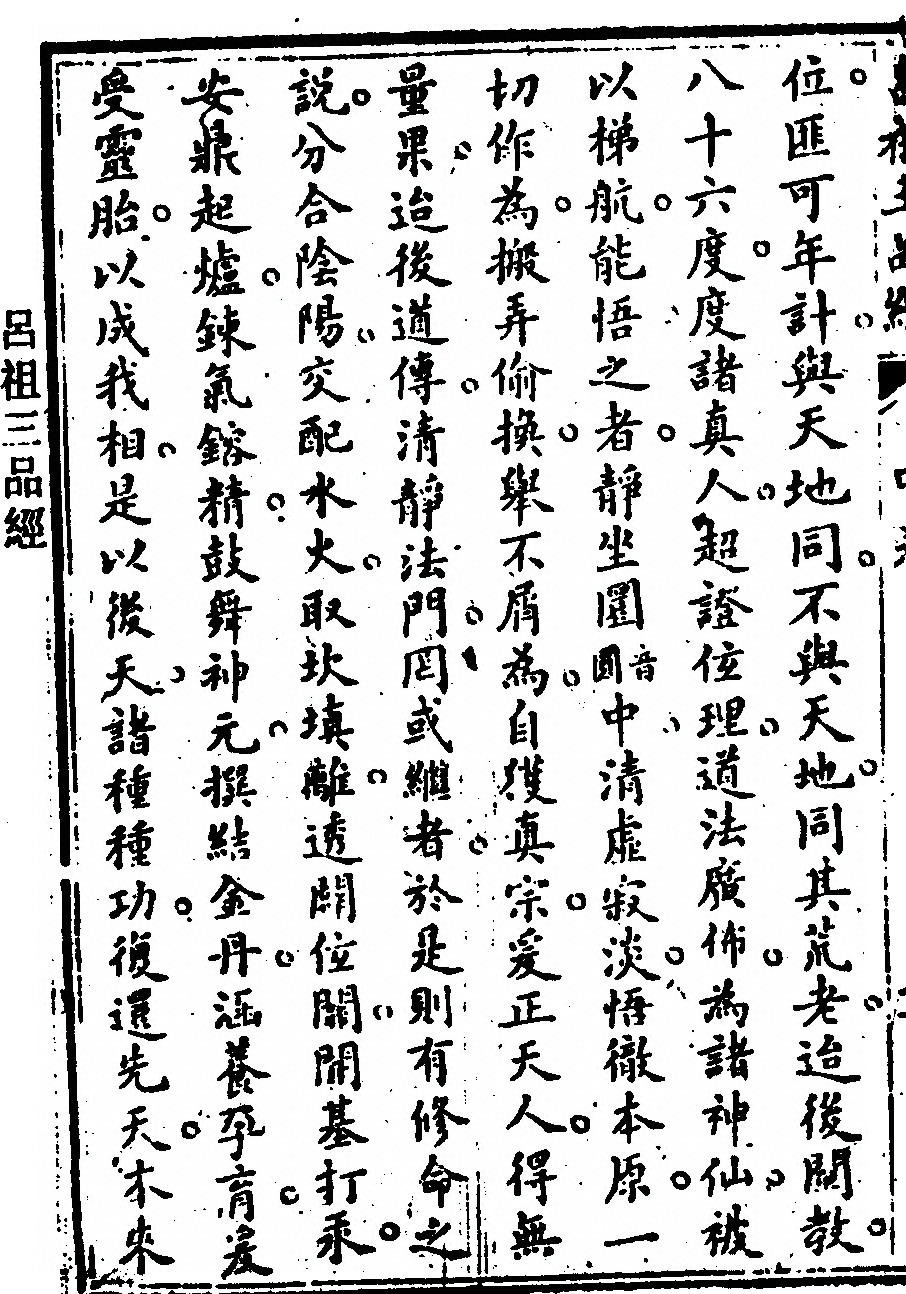 位匪可年計與天地同不與天地同其荒老迨後闡教
八十六度度諸真人超證位理道法廣佈為諸神仙被
以梯航能悟之者靜坐圜音圓中清虛寂淡悟徹本原一
切作為搬弄偷換舉不屑為自獲真宗爰正天人得無
量果迨後道傳清靜法門罔或繼者於是則有修命之
說分合陰陽交配水火取坎填離透關位關開基打汞
安鼎起爐鍊氣鎔精鼓舞神元撰結金丹涵養孕育爰
受靈胎以成我相是以後天諸種種功復還先天本來
呂祖三品經